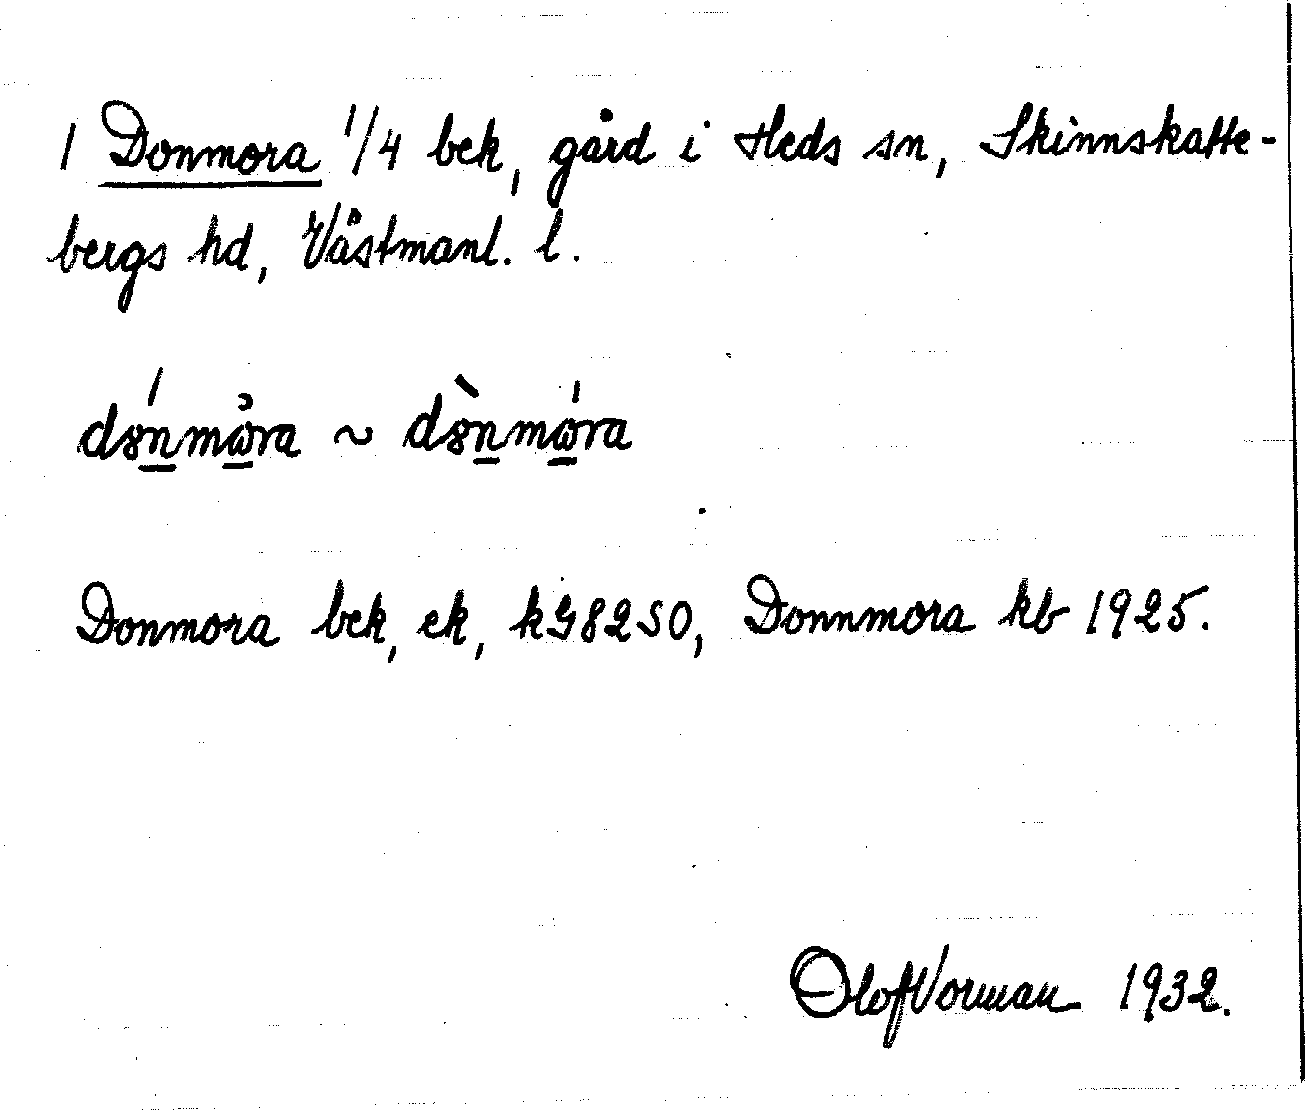 1 Donmora 1/4 bek, gård i Heds sn, Skinnskatte-
bergs hd, Västmanl. l.
Donmora bek, ek, kG8250, Donnmora kb 1925.
Olof Norman 1932.